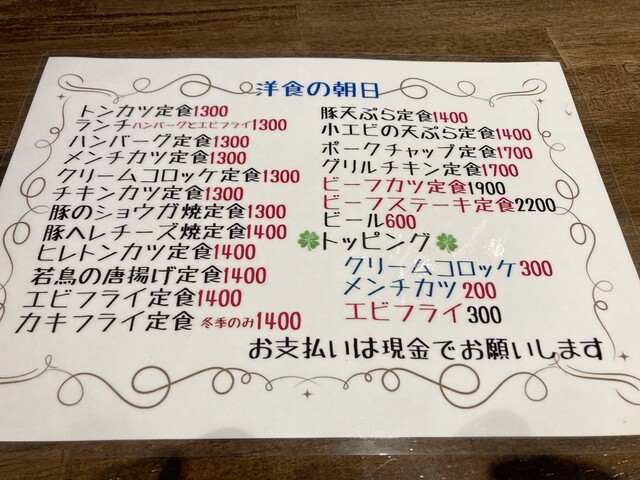 洋食の朝日
トンカツ定食1300
ランチハンバーグとエビフライ1300
ハンバーグ定食1300
メンチカツ定食1300
クリームコロッケ定食1300
チキンカツ定食1300
豚のショウガ焼定食1300
豚ヘレチーズ焼定食1400
ヒレトンカツ定食1400
若鳥の唐揚げ定食1400
エビフライ定食1400
カキフライ定食 冬季のみ1400
豚天ぷら定食1400
小エビの天ぷら定食1400
ポークチャップ定食1700
グリルチキン定食1700
ビーフカツ定食1900
ビーフステーキ定食2200
ビール600
トッピング
クリームコロッケ300
メンチカツ 200
エビフライ300
お支払いは現金でお願いします